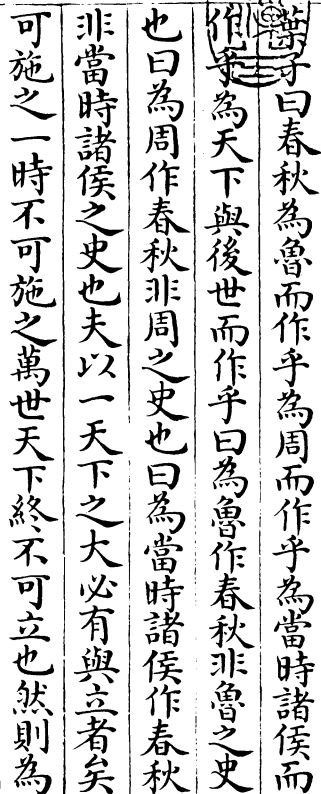 葉子曰春秋為魯而作乎為周而作乎為當時諸侯而
作乎為天下與後世而作乎曰為魯作春秋非魯之史
也曰為周作春秋非周之史也曰為當時諸侯作春秋
非當時諸侯之史也夫以一天下之大必有與立者矣
可施之一時不可施之萬世天下終不可立也然則為